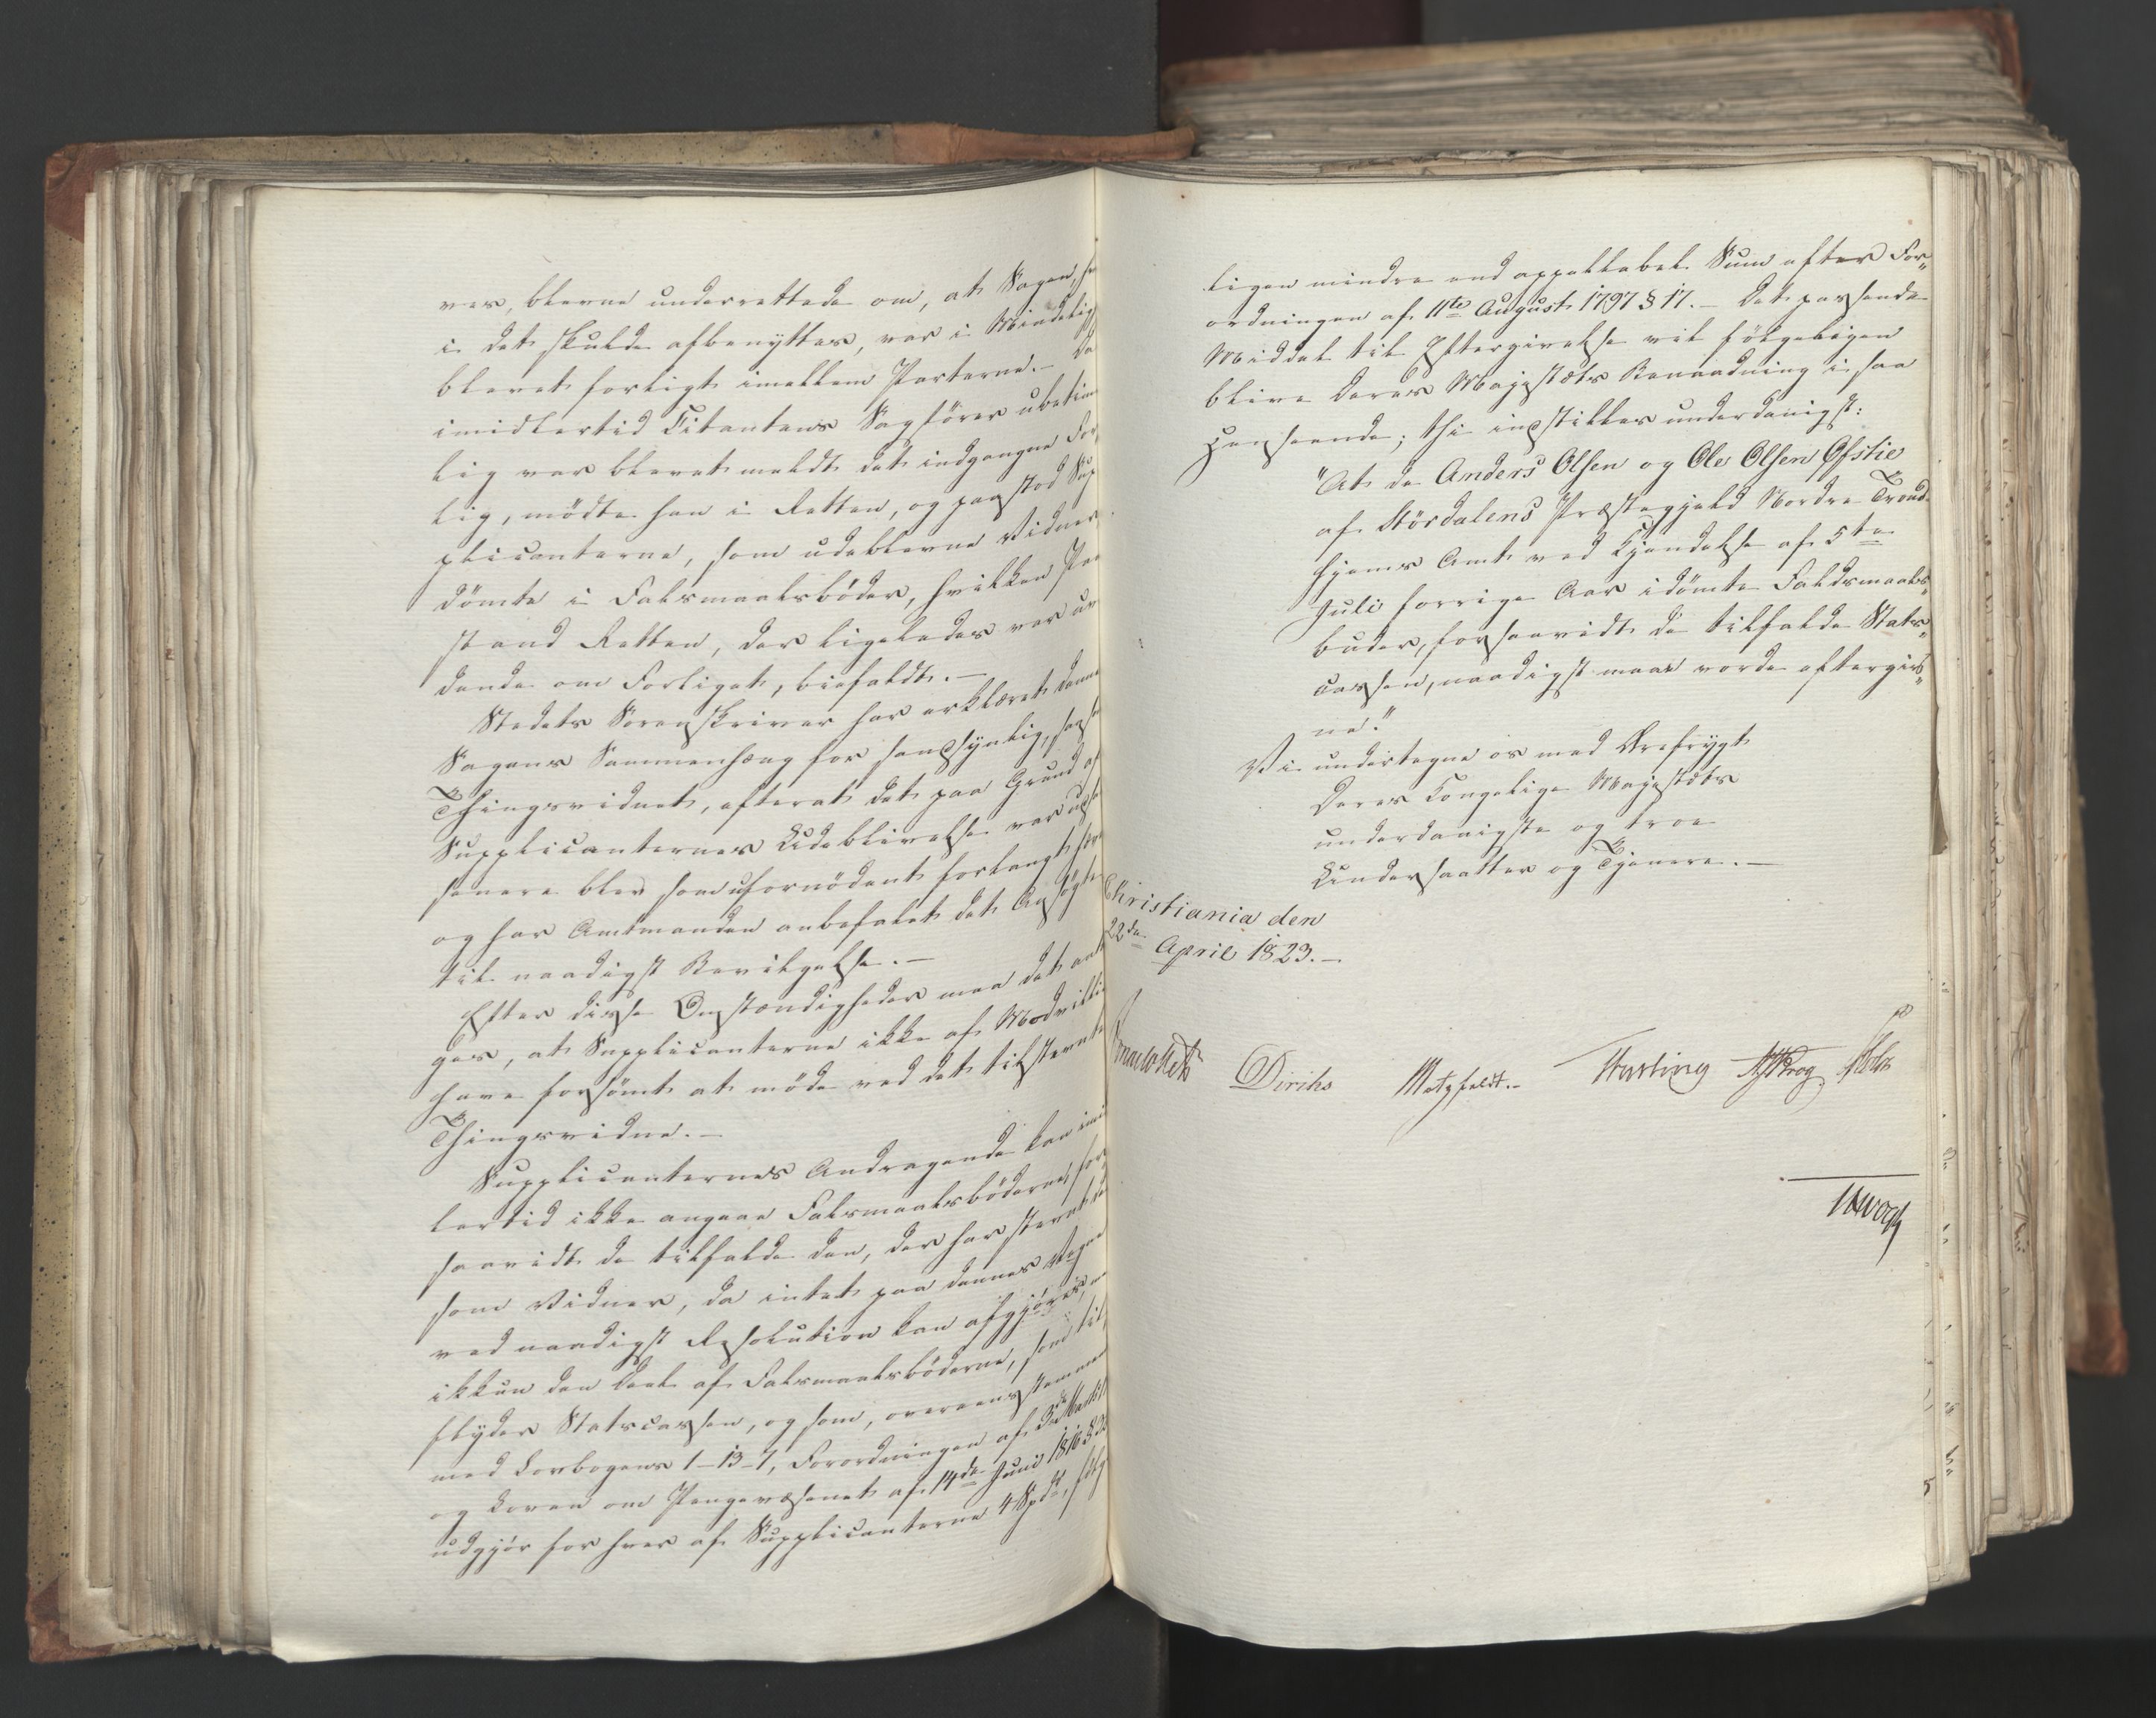 ver, blevne underrettede om, at Sagen, hvor
i det skulde afbenyttes, var i Mindelig
blevet forligt imellem Parterne. – Da
imidlertid Citantens Sagfører ubetime
lig var blevet meldt det indgangne For„
lig, mödte han i Retten, og paastod Sup
plicanterne, som udeblevne Vidner
dömte i Falsmaalsböder, hvilken Paa
stand Retten, der ligeledes var uvi
dende om Forliget, biefaldt. –
Stedets Sorenskriver har erklæret denne
Sagens Sammenhæng for sandsynlig,
Thingsvidnet, efterat det paa Grund af
Supplicanternes Udeblivelse var udsat
senere blev som ufornödent forlangt hævet
og har Amtmanden anbefalet det Ansögte
til naadigst Bevilgelse. –
Efter disse Omstændigheder maa det anta
ges, at Supplicanterne ikke af Modvillie
have forsömt at möde ved det tilstevnte
Thingsvidne. –
Supplicanternes Andragende kan imid
lertid ikke angaae Falsmaalsböderne, for
saavidt de tilfalde den, der har stevnt dem
som Vidner, da intet paa dennes Vegne
ved naadigst Resolution kan afgjöres, men
ikkun den Deel af Falsmaalsböderne, som til„
flyder Statscassen, og som, overeensstemmende
med Lovbogens 1–13–7, Forordningen af 3de
og Loven om Pengevæsenet af 14de Juni 1816 §
udgjör for hver af Supplicanterne 4 Spd, fölge
ligen mindre end appellabel Sum efter For„
ordningen af 11te August 1797 § 17. – Det passende
Middel til Eftergivelse vil fölgeligen
blive Deres Majestæts Benaadning i saa
Henseende; thi indstilles underdanigst:
"At de Anders Olsen og Ole Olsen Ofstie
af Stördalens Præstegjeld Nordre Trond
hjems Amt ved Kjendelse af 5te
Juli forrige Aar idömte Faldsmaals„
buder, forsaavidt de tilfalde Stats„
cassen, naadigst maae vorde eftergiv„
ne."
Vi undertegne os med Ærefrygt
Deres Kongelige Majestæts
underdanigste og troe
Undersaatter og Tjenere. –
Christiania den
22de April 1823. –
Diriks Motzfeldt. – Hasting Krog Holst
Vogt